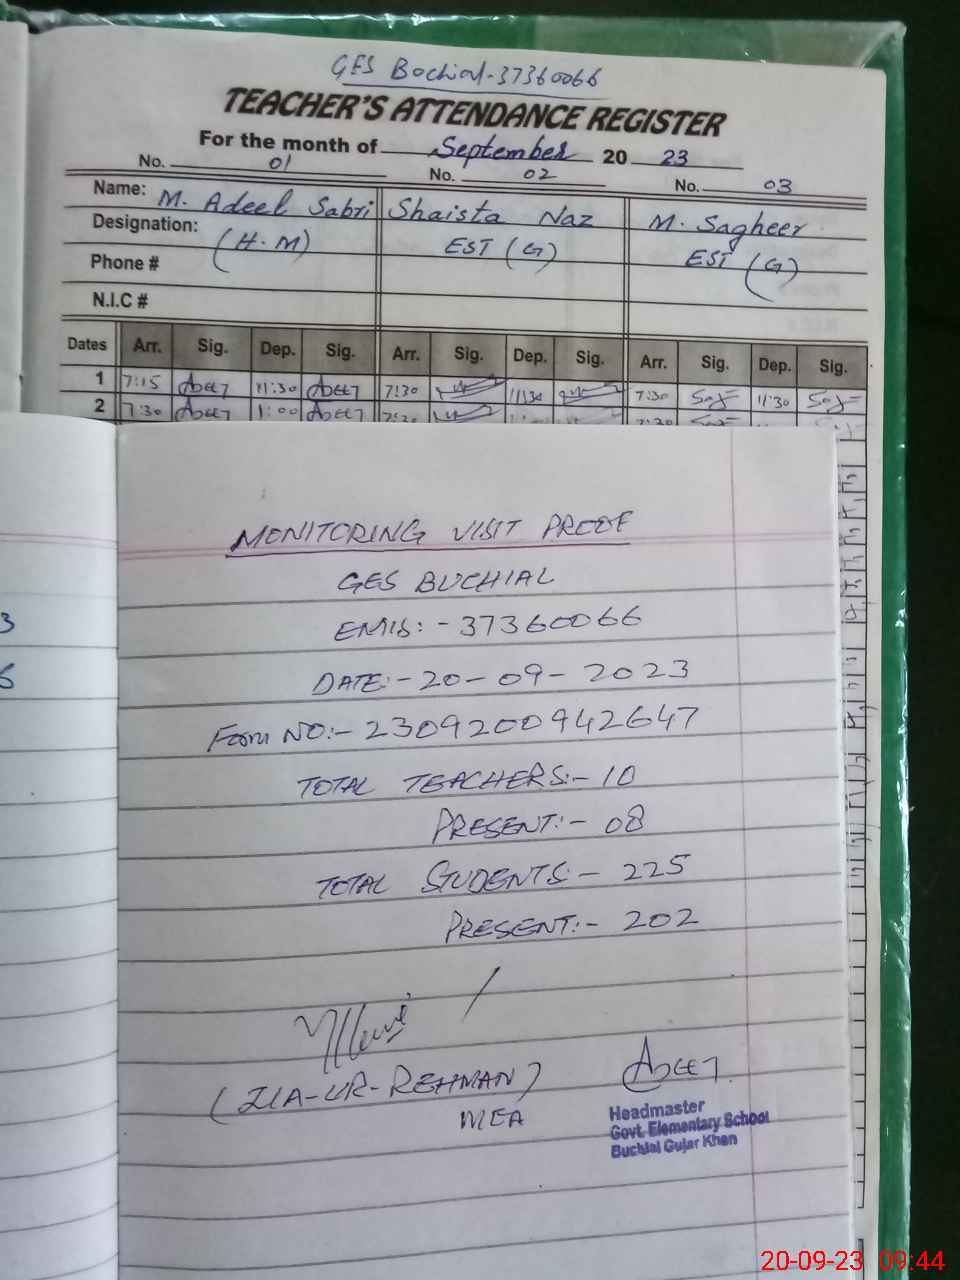 GES Bochial-37360066
TEACHER'S ATTENDANCE REGISTER
For the month of September 20 23
No. 01 No. 02 No. 03
Name: M. Adeel Sabri Shaista Naz M. Sagheer
Designation: (H.M) EST (G) EST (G)
Phone #
N.I.C #
Dates Arr. Sig. Dep. Sig. Arr. Sig. Dep. Sig. Arr. Sig. Dep. Sig.
1 7:15 Adeel 11:30 Adeel 7:30 11:30 7:30 11:30
2 7:30 Adeel 1:00 Adeel 7:30 7:30
MONITORING VISIT PROOF
GES BUCHIAL
EMIS:- 37360066
DATE:- 20-09-2023
Form NO:- 2309200942647
TOTAL TEACHERS:- 10
PRESENT:- 08
TOTAL STUDENTS:- 225
PRESENT:- 202
(ZIA-UR-REHMAN)
MEA
Adeel
Headmaster
Govt. Elementary School
Buchial Gujar Khan
20-09-23 09:44